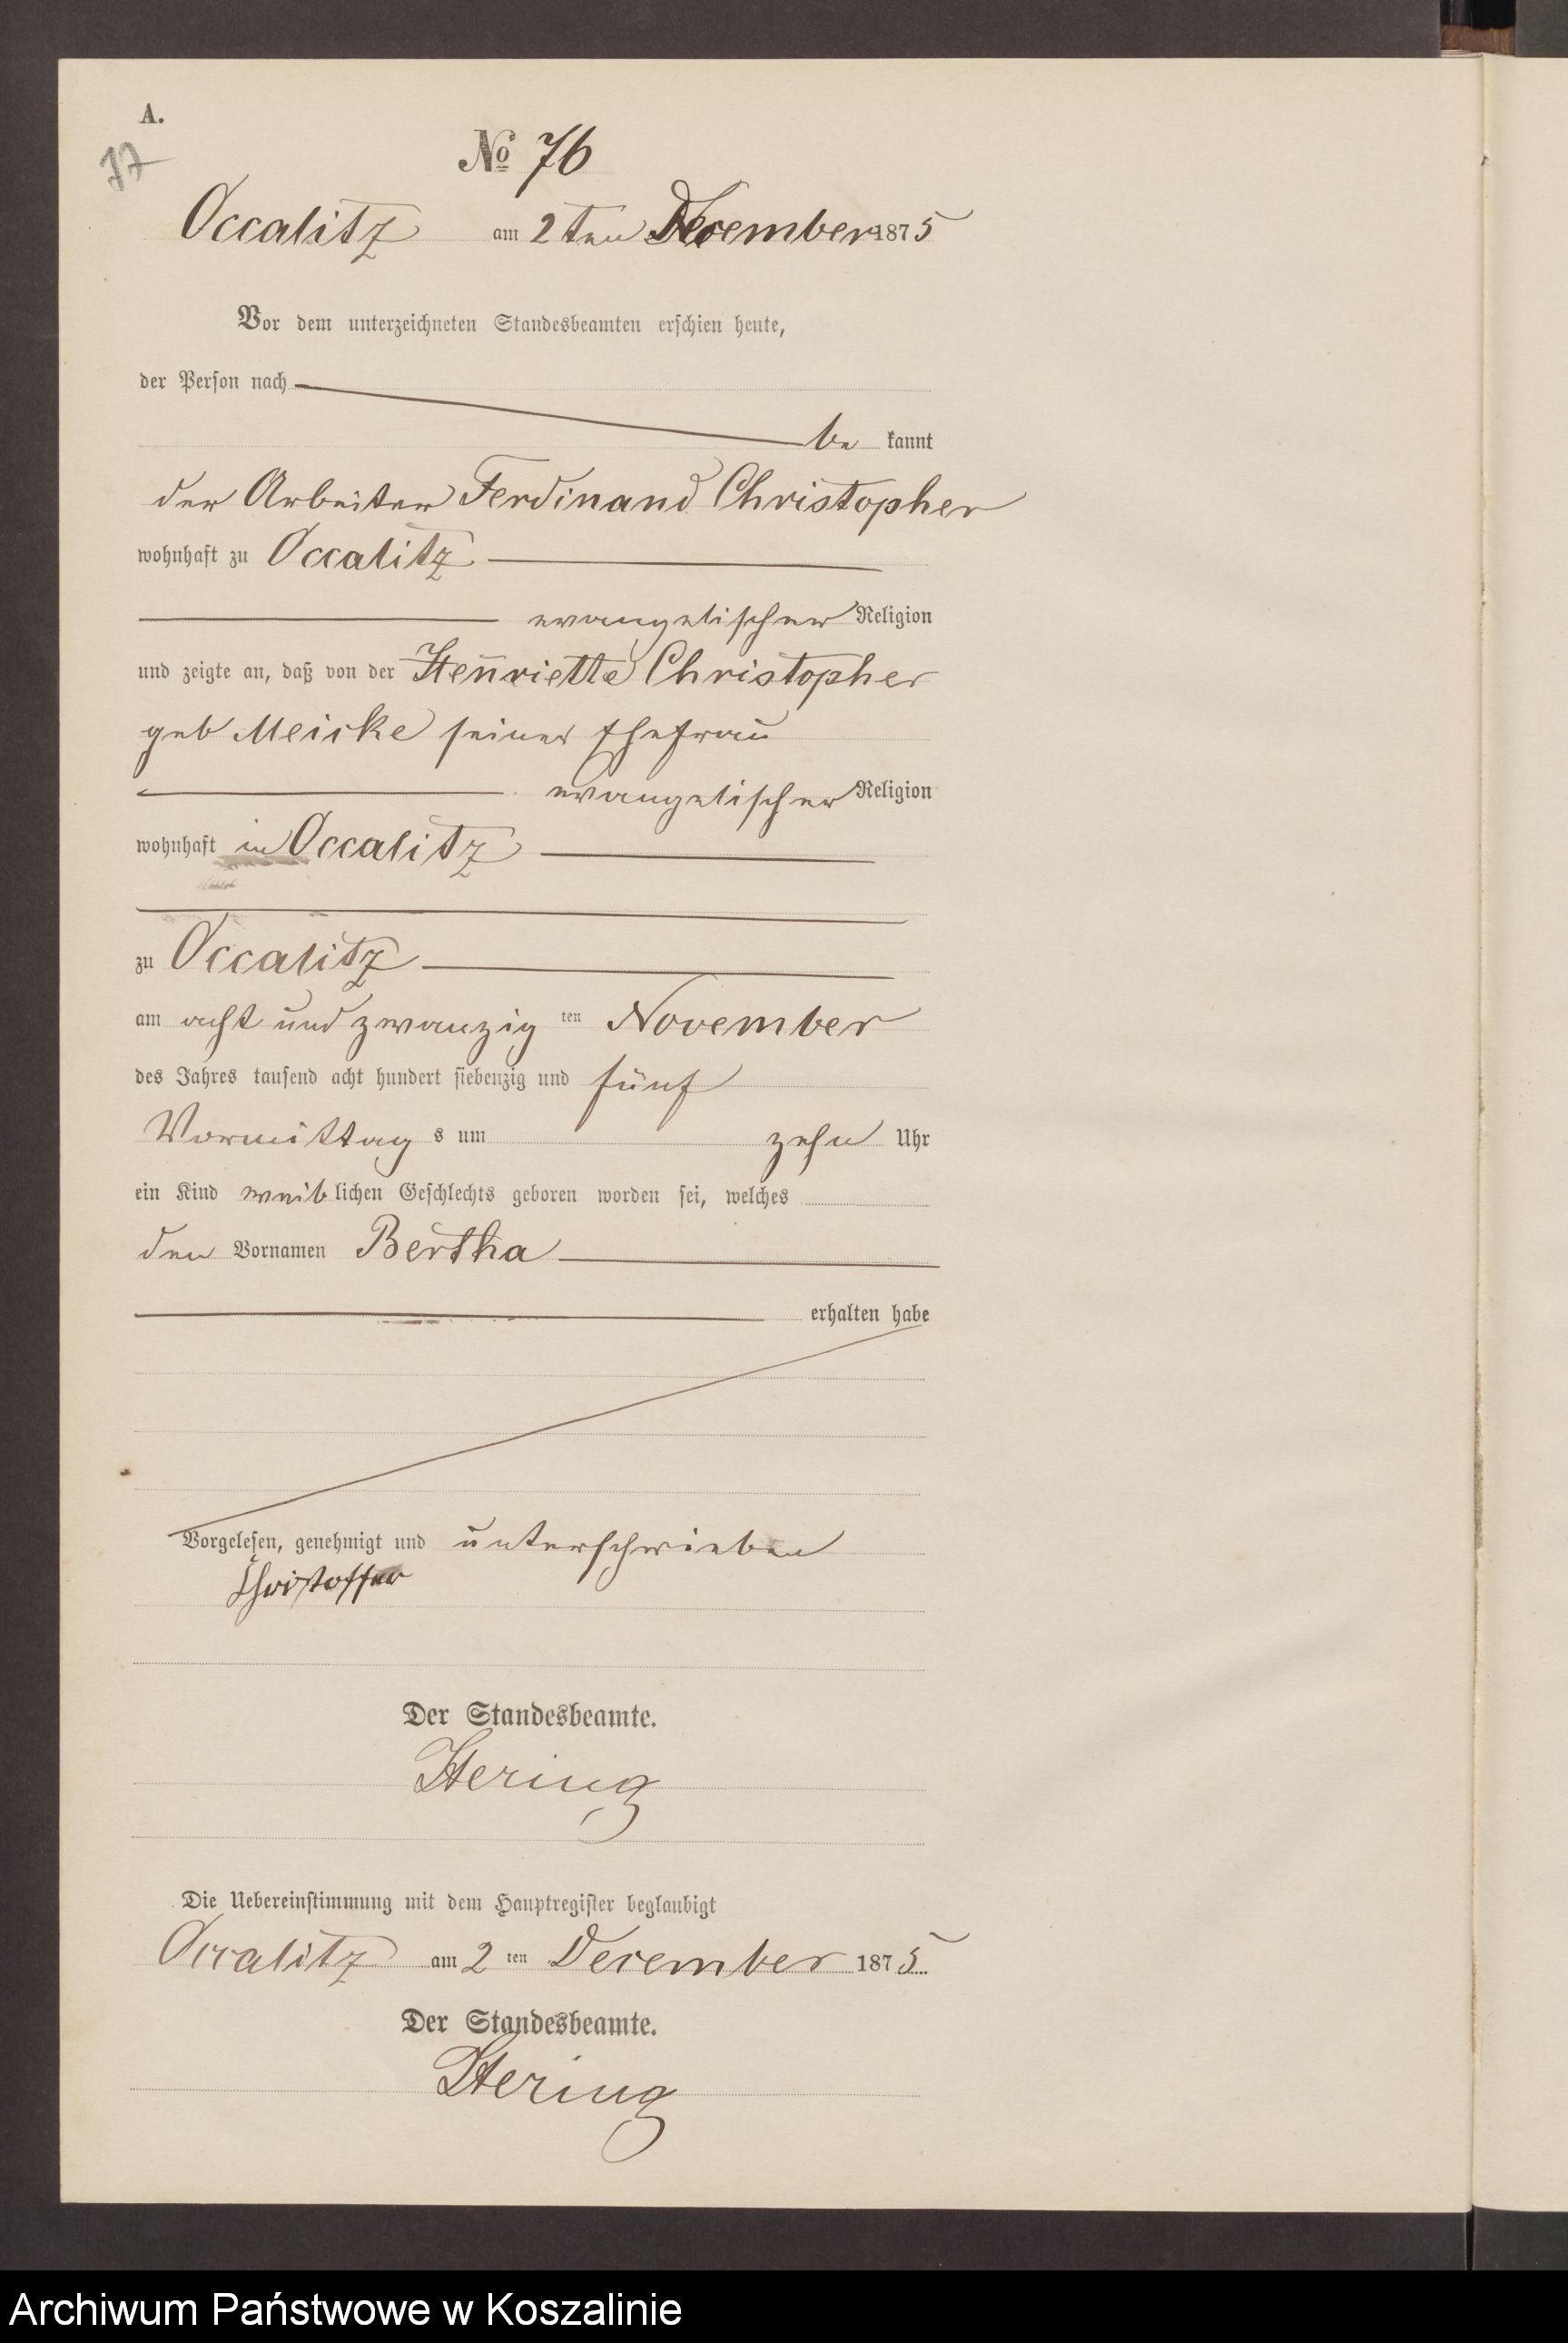 A.
77
No 76
Occalitz am 2ten December 1875
Vor dem unterzeichneten Standesbeamten erschien heute,
der Person nach
be kannt
der Arbeiter Ferdinand Christopher
wohnhaft zu Occalitz
evangelischer Religion
und zeigte an, daß von der Henriette Christopher
geb Meicke seiner Ehefrau
evangelischer Religion
wohnhaft in Occalitz
zu Occalitz
am acht und zwanzig ten November
des Jahres tausend acht hundert siebenzig und fünf
Vormittag s um zehn Uhr
ein Kind weib lichen Geschlechts geboren worden sei, welches
den Vornamen Bertha
erhalten habe
Vorgelesen, genehmigt und unterschrieben
Christoffer
Der Standesbeamte.
Hering
Die Uebereinstimmung mit dem Hauptregister beglaubigt
Occalitz am 2 ten December 1875.
Der Standesbeamte.
Hering
Archiwum Państwowe w Koszalinie